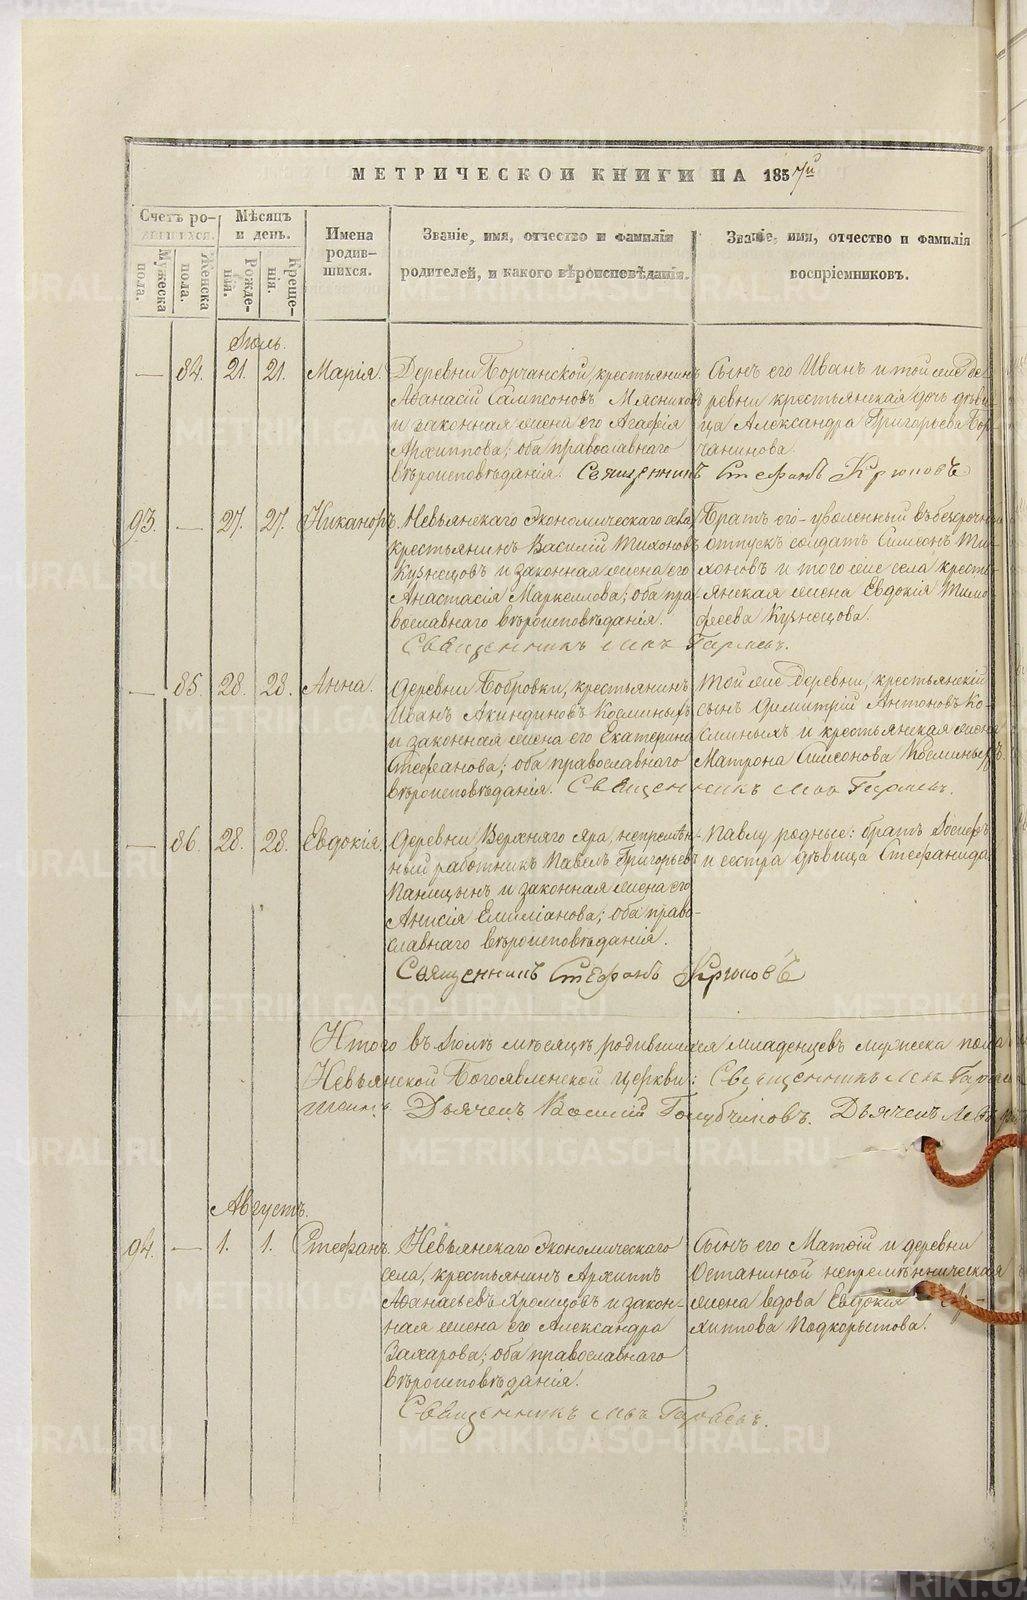 МЕТРИЧЕСКОЙ КНИГИ НА 1857й
Счетъ родившихся.
Мѣсяцъ и день.
Имена родившихся.
Званіе, имя, отчество и фамилія родителей, и какого вѣроисповѣданія.
Званіе, имя, отчество и фамилія воспріемниковъ.
Мужеска пола.
Женска пола.
Рожденій.
Крещенія.
Іюль.
— 84. 21. 21. Марія.
Деревни Борчанской, крестьянинъ
Аѳанасій Сампсоновъ Мясниковъ
и законная жена его Агафія
Архиппова; оба православнаго
вѣроисповѣданія.
Сынъ его Иванъ и той же де-
ревни крестьянская дочь дѣви-
ца Александра Григорьева Бор-
чанинова.
Священникъ Стефанъ Крюковъ
93. — 27. 27. Никаноръ.
Невьянскаго Экономическаго села
крестьянинъ Василій Тихоновъ
Кузнецовъ и законная жена его
Анастасія Маркеллова; оба пра-
вославнаго вѣроисповѣданія.
Братъ его уволенный въ безсрочный
отпускъ солдатъ Симеонъ Ти-
хоновъ и того же села кресть-
янская жена Евдокія Тимо-
феева Кузнецова.
Священникъ
— 85. 28. 28. Анна.
Деревни Бобровки, крестьянинъ
Иванъ Акиндиновъ Косминыхъ
и законная жена его Екатерина
Стефанова; оба православнаго
вѣроисповѣданія.
Той же деревни, крестьянскій
сынъ Димитрій Антоновъ Ко-
сминыхъ и крестьянская жена
Матрона Симеонова Косминыхъ.
Священникъ
— 86. 28. 28. Евдокія.
Деревни Верхняго Яра, непремѣн-
ный работникъ Павелъ Григорьевъ
Паницынъ и законная жена его
Анисія Емиліанова; оба право-
славнаго вѣроисповѣданія.
Павлу родные: братъ Іосифъ
и сестра дѣвица Стефанида.
Священникъ Стефанъ Крюковъ
Итого въ Іюлѣ мѣсяцѣ родившихся младенцевъ мужеска пола
Невьянской Богоявленской церкви: Священникъ
Дьячекъ Василій Голубчиковъ. Дьячекъ
Августъ.
94. — 1. 1. Стефанъ.
Невьянскаго Экономическаго
села, крестьянинъ Архиппъ
Аѳанасьевъ Хромцовъ и закон-
ная жена его Александра
Захарова; оба православнаго
вѣроисповѣданія.
Сынъ его Матѳій и деревни
Останиной непремѣнническая
жена вдова Евдокія
хиппова Подкорытова.
Священникъ
METRIKI.GASO-URAL.RU